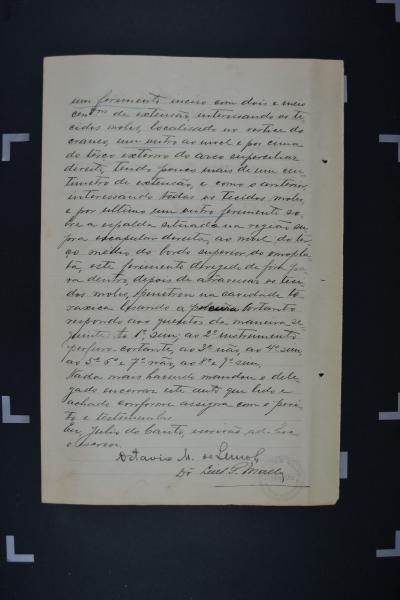 um ferimento inciso com dois e meio
centms de extensão, interessando os te-
cidos moles, localisado no vertice do
craneo, um outro ao nivel e por cima
do terço externo do arco superciliar
direito, tendo pouco mais de um cen-
timetro de extensão, e como o anterior,
interessando todos os tecidos moles,
e por ultimo um outro ferimento so-
bre a espadua situado na região su-
pra escapular direita, ao nivel do ter-
ço medio do bordo superior do omopla-
ta, este ferimento dirigido de fora pa-
ra dentro, depois de atravessar os teci-
dos moles, penetrou na cavidade to-
raxica lesando a pleura. Portanto
respondo aos quesitos da maneira se-
guinte: ao 1º sim, ao 2º instrumento
perfuro-cortante, ao 3º não, ao 4º sim,
ao 5º 6º e 7º não, ao 8º e 9º sim,
Nada mais havendo mandou o dele-
gado encerrar este auto que lido e
achado conforme assigna com o peri-
to e testemunhas
Eu, Julio do Canto, escrivão, ad-hoc
o escrevi.
Octavio M. de Lemos
Dr Luis